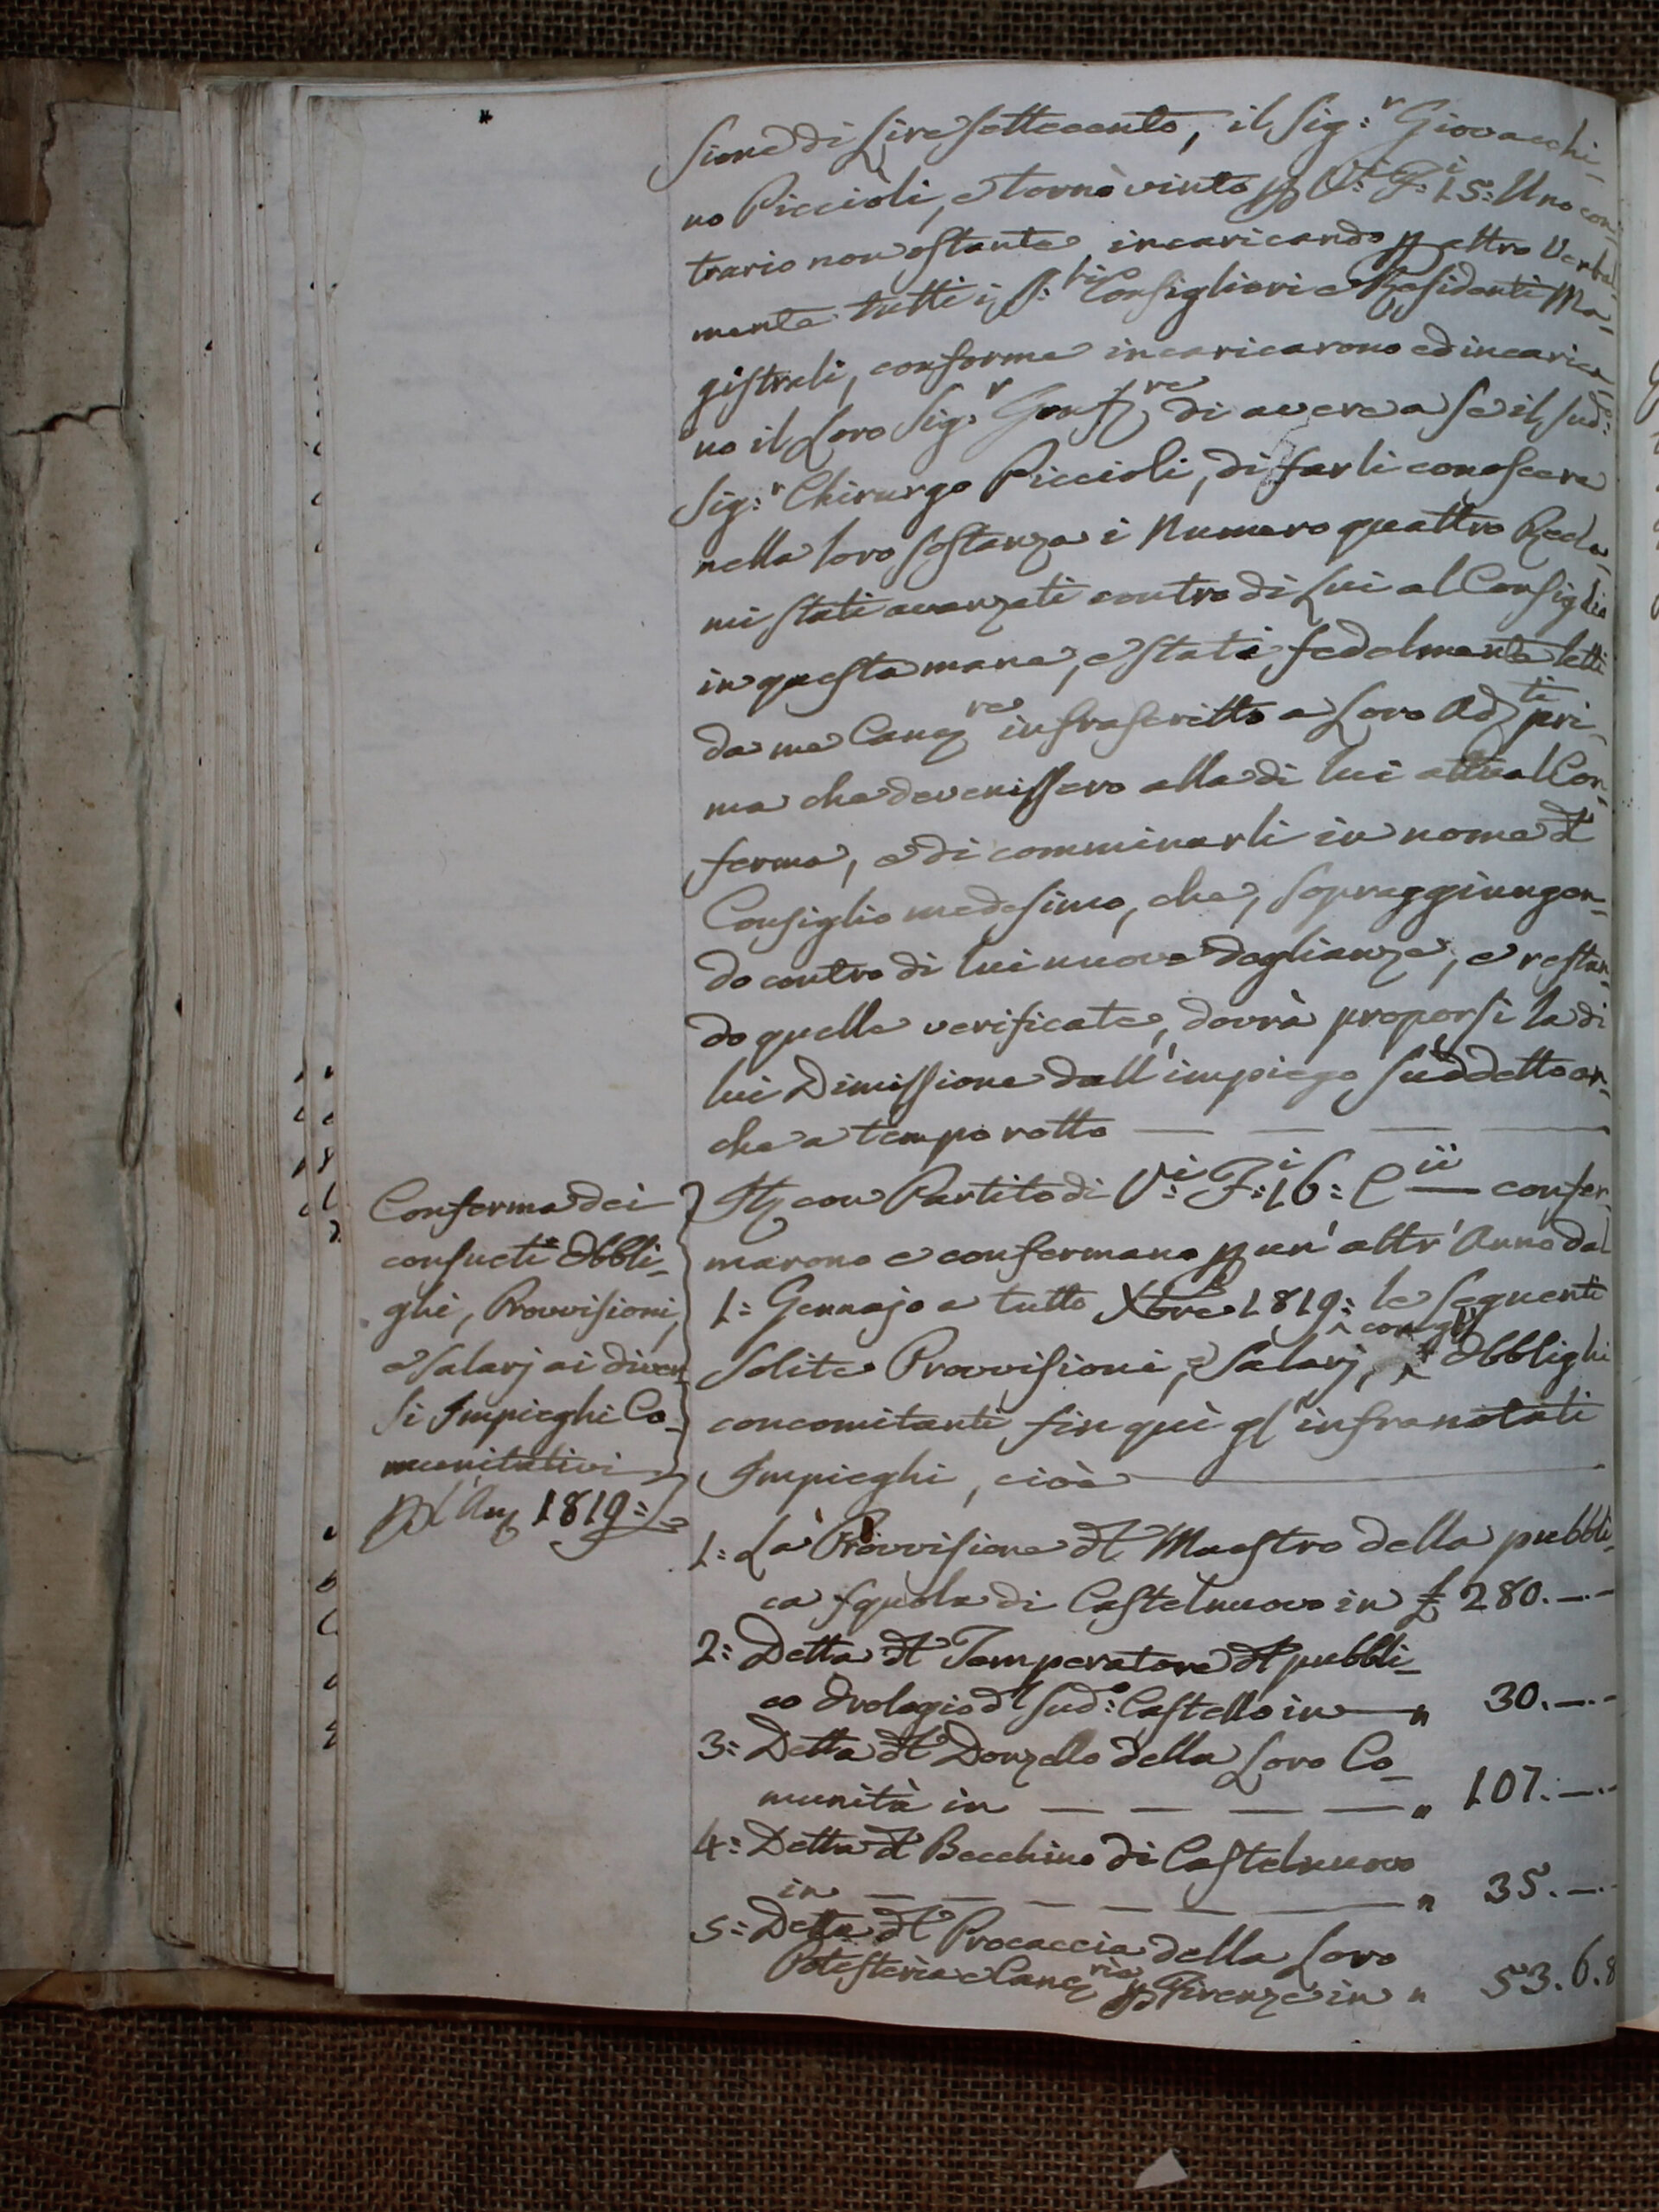 sione di Lire settecento, il Sig:r Giovacchi-
no Piccioli, e tornò vinto p V:i F:i 15: Uno con-
trario non ostante, incaricando p altro Verbal-
mente tutti i S:ri Consiglieri e Residenti Ma-
gistrali, conforme incaricarono ed incarica-
no il Loro Sig:r Gonfre di avere a se il sud:o
Sig:r Chirurgo Piccioli, di farli conoscere
nella loro sostanza i Numero quattro Recla-
mi stati avanzati contro di Lui al Consiglio
in questa mane, e stati fedelmente letti
da me Cancre infrascritto a Loro Adti pri-
ma che devenissero alla di lui attual Con-
ferma, e di comminarli in nome dl
Consiglio medesimo, che, sopraggiungen-
do contro di lui nuove doglianze, e restan-
do quelle verificate, dovrà proporsi la di
lui Dimissione dall'impiego suddetto an-
che a tempo rotto — — — —
Conferma dei
consueti Obbli-
ghi, Provvisioni,
e Salarj ai diver-
si Impieghi Co-
munitativi
p l'Ano 1819:
Ito con Partito di V:i F:i 16: C ii — confer-
marono e confermano p un' altr' Anno dal
1: Gennajo a tutto Xbre 1819: le seguenti
solite Provvisioni, e Salarj, con gl' Obblighi
concomitanti fin quì gl' infranotati
Impieghi, cioè —
1: La Provvisione dl Maestro della pubbli-
ca squola di Castelnuovo in £ 280.—.—
2: Detta dl Temperatore dl pubbli-
co Orologio dl sud:o Castello in — " 30.—.—
3: Detta dl Donzello della Loro Co-
munità in — — — — " 107.—.—
4: Detta dl Becchino di Castelnuovo
in — — — — — — " 35.—.—
5: Detta dl Procaccia della Loro
Potesteria e Cancria p Firenze in " 53.6.8